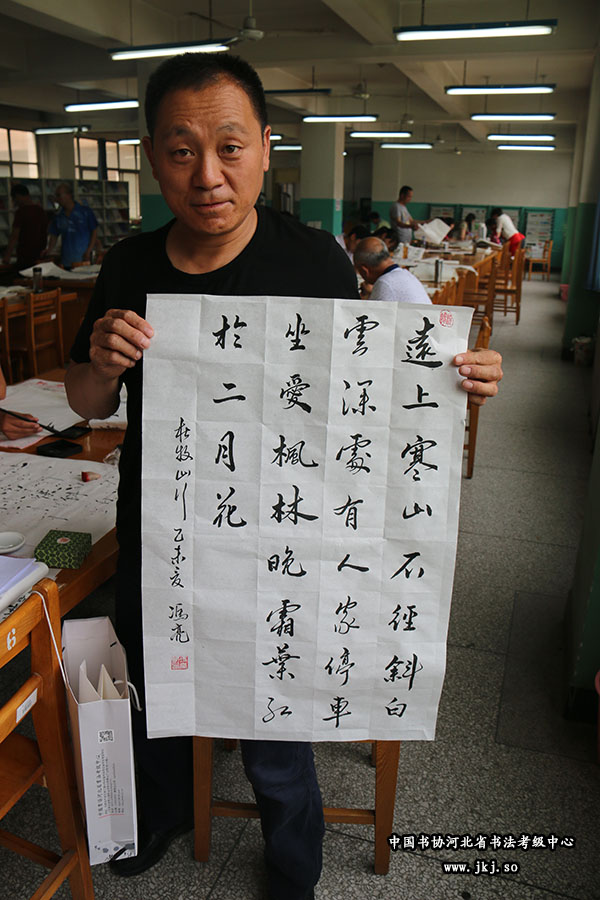 遠上寒山石徑斜白
雲深處有人家停車
坐愛楓林晚霜葉紅
於二月花
杜牧山行 乙未夏 馮亮
6
中国书协河北省书法考级中心
www.jkj.so